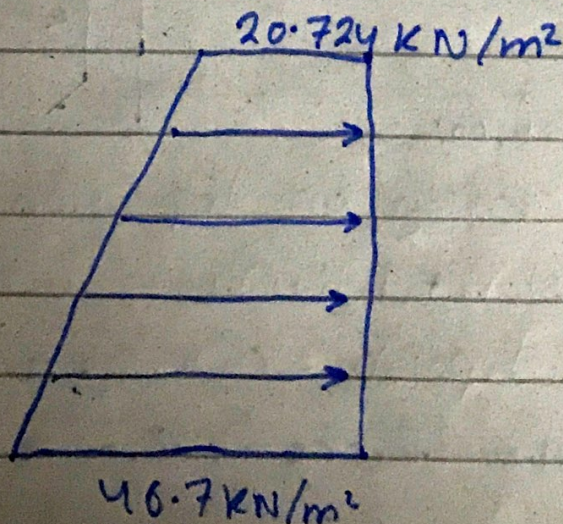 20.724 KN/m²
46.7KN/m²